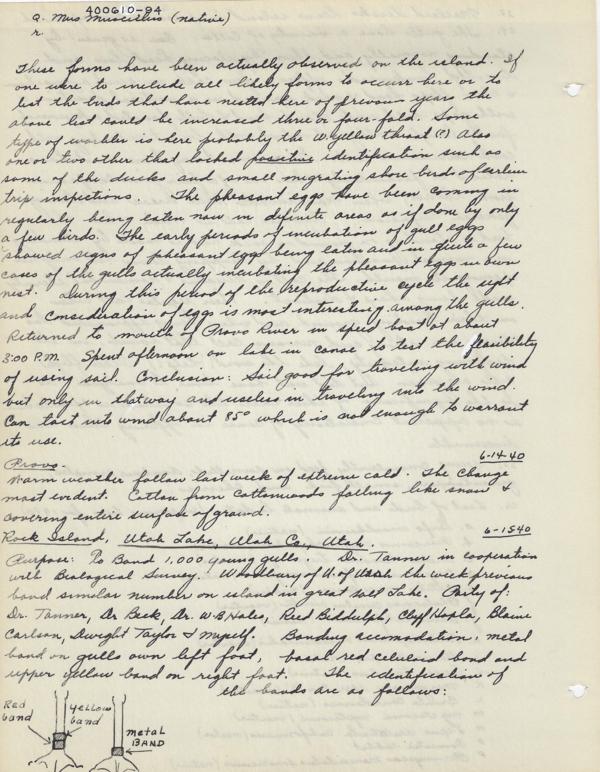 400610-94
a. Mus Musculus (native)
r.
These forms have been actually observed on the island. If
one were to include all likely forms to occurr here or to
list the birds that have nested here of previous years the
above list could be increased three or four-fold. Some
type of warbler is here probably the W. Yellow throat (?) Also
one or two other that lacked positive identification such as
some of the ducks and small migrating shore birds of earlier
trip inspections. The pheasant eggs have been coming in
regularly being eaten now in definite areas as if done by only
a few birds. The early periods of incubation of gull eggs
showed signs of pheasant eggs being eaten and in quite a few
cases of the gulls actually incubating the pheasant eggs in own
nest. During this period of the reproductive cycle the sight
and consideration of eggs is most interesting among the gulls.
Returned to mouth of Provo River in speed boat at about
3:00 P.M. Spent afternoon on lake in canoe to test the feasibility
of using sail. Conclusion: Sail good for traveling with wind
but only in that way and useless in traveling into the wind.
Can tact into wind about 85° which is not enough to warrant
its use.
6-14-40
Provo.
Warm weather follow last week of extreme cold. The change
most evident. Cotton from Cottonwoods falling like snow &
covering entire surface of ground.
Rock Island, Utah Lake, Utah Co., Utah. 6-15-40
Purpose: To Band 1,000 young gulls. Dr. Tanner in cooperation
with Biological Survey. Woodbury of U. of Utah the week previous
band similar number on island in great salt Lake. Party of:
Dr. Tanner, Dr Beck, Dr. W.B Hales, Reed Biddulph, Clyff Hopla, Blaine
Carlson, Dwight Taylor & myself. Banding accomodation: metal
band on gulls own left foot, basal red celuloid band and
upper yellow band on right foot. The identification of
the bands are as follows:
Red band
yellow band
metal BAND